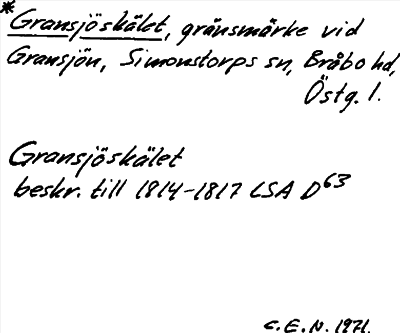 *Gransjöskälet, gränsmärke vid
Gransjön, Simonstorps sn, Bråbo hd,
Östg. l.
Gransjöskälet
beskr. till 1814-1817 LSA D63
C.E.N. 1971.